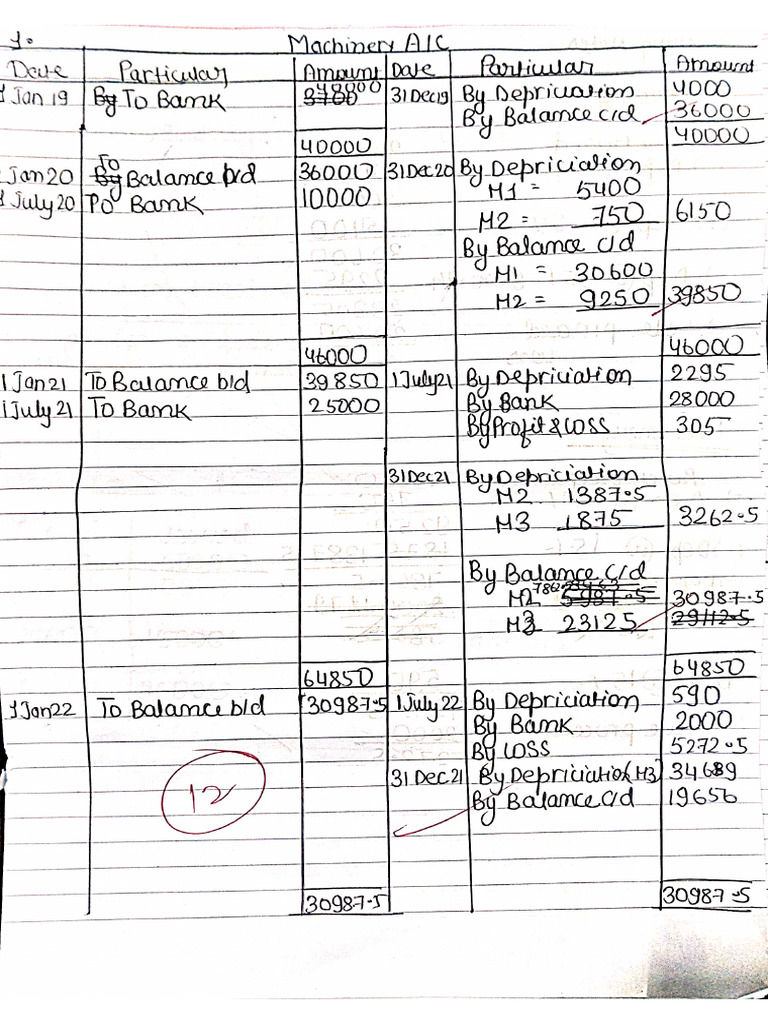 1.
Machinery A/C
Date Particular Amount Date Particular Amount
1 Jan 19 By To Bank 31 Dec 19 By Depriciation 4000
By Balance c/d 36000
40000 40000
1 Jan 20 By To Balance b/d 36000 31 Dec 20 By Depriciation
1 July 20 To Bank 10000 M1 = 5400
M2 = 750 6150
By Balance c/d
M1 = 30600
M2 = 9250 39850
46000 46000
1 Jan 21 To Balance b/d 39850 1 July 21 By Depriciation 2295
1 July 21 To Bank 25000 By Bank 28000
By Profit & Loss 305
31 Dec 21 By Depriciation
M2 1387.5
M3 1875 3262.5
By Balance C/d
M2 5987.5 30987.5
M3 23125 29112.5
64850 64850
1 Jan 22 To Balance b/d 30987.5 1 July 22 By Depriciation 590
By Bank 2000
By Loss 5272.5
31 Dec 21 By Depriciation (M3)
By Balance C/d 19656
12
30987.5 30987.5